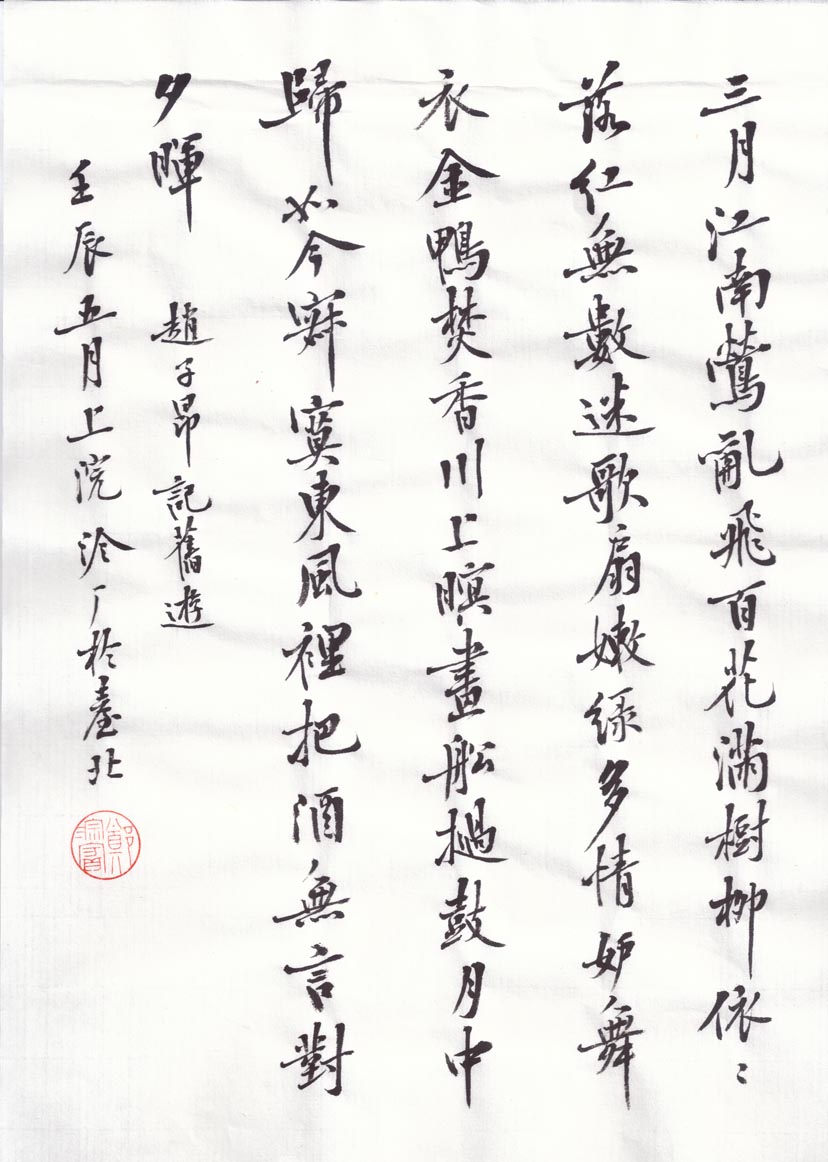 三月江南鶯亂飛百花滿樹柳依〻
落紅無數迷歌扇嫩綠多情妒舞
衣金鴨焚香川上暝畫船撾鼓月中
歸如今寂寞東風裡把酒無言對
夕暉
趙子昂記舊遊
壬辰五月上浣泠厂於臺北